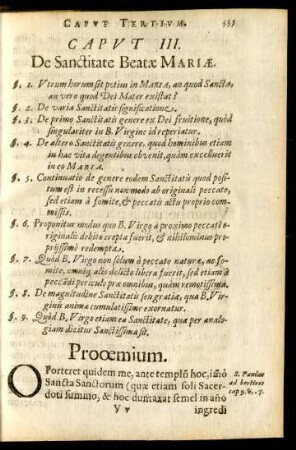 CAPVT TERTIVM.
CAPVT III.
De Sanctitate Beatæ MARIÆ.
§. 1. Vtrum horum sit potius in MARIA, an quod Sancta,
an vero quod Dei Mater existat?
§. 2. De varia Sanctitatis significatione.
§. 3. De primo Sanctitatis genere ex Dei fruitione, quòd
singulariter in B. Virgine id reperiatur.
§. 4. De altero Sanctitatis genere, quod hominibus etiam
in hac vita degentibus obvenit, quàm excelluerit
in eo MARIA.
§. 5. Continuatio de genere eodem Sanctitatis quod
positum est in recessu non modo ab originali peccato,
sed etiam à fomite, & peccatis actu proprio com-
missis.
§. 6. Proponitur modus quo B. Virgo à proximo peccati o-
riginalis debito erepta fuerit, & nihilominus pro-
prijssimè redempta.
§. 7. Quòd B. Virgo non solum à peccato naturæ, no fo-
mite, omniq; alio delicto libera fuerit, sed etiam à
peccādi periculo præ omnibus, quàm remotissima.
§. 8. De magnitudine Sanctitatis seu gratiæ, qua B. Vir-
ginis anima cumulatissime exornatur.
§. 9. Quòd B. Virgo etiam ea Sanctitate, quæ per ana-
logiam dicitur Sanctissima sit.
Prooemium.
OPorteret quidem me, ante templū hoc, imò
Sancta Sanctorum (quæ etiam soli Sacer-
doti summo, & hoc duntaxat semel in año
S. Paulus
ad hebræos
cap. 9. v. 7.
V v
ingredi